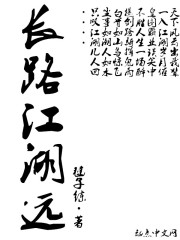 天下风云出我辈
一入江湖岁月催
皇图霸业谈笑中
不胜人生一场醉
提剑跨骑挥鬼雨
白骨如山鸟惊飞
尘事如潮人如水
只叹江湖几人回
长路江湖远
著
起点中文网